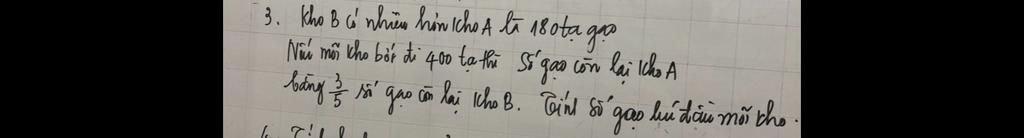 3. Kho B có nhiều hơn kho A là 180 tạ gạo
Nếu mỗi kho bớt đi 400 tạ thì số gạo còn lại kho A
bằng 3/5 số gạo còn lại kho B. Tính số gạo lúc đầu mỗi kho.